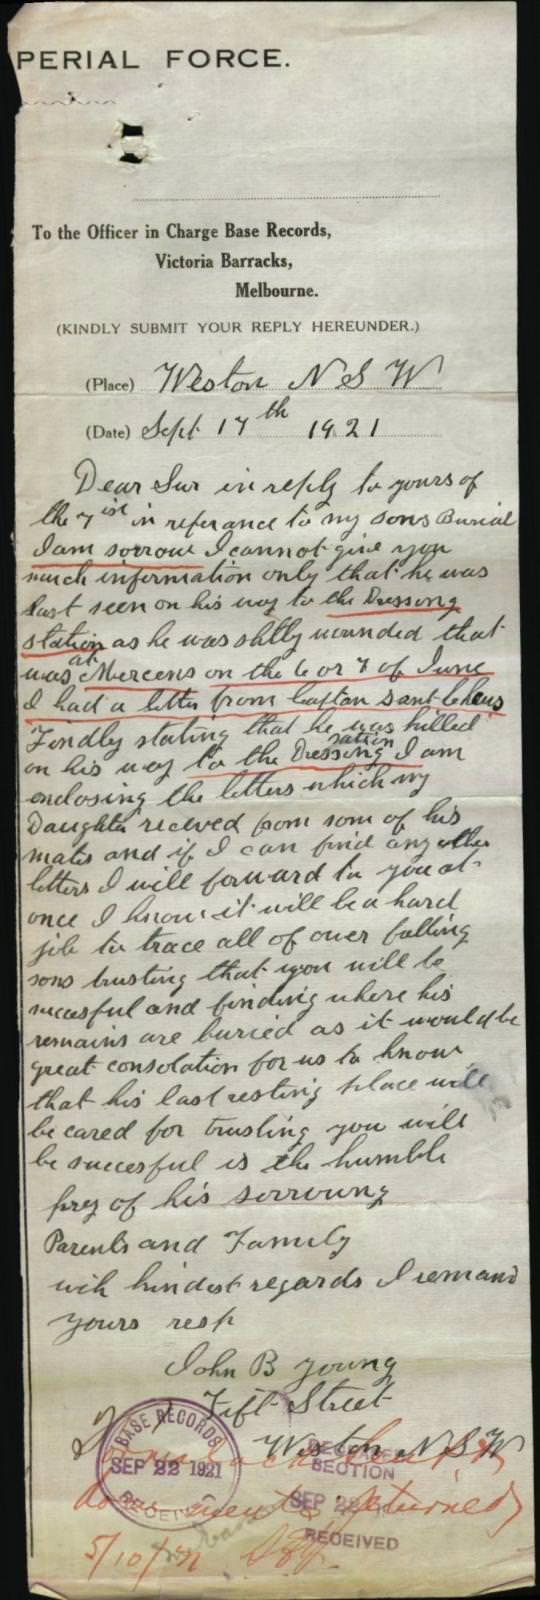 PERIAL FORCE.
To the Officer in Charge Base Records,
Victoria Barracks,
Melbourne.
(KINDLY SUBMIT YOUR REPLY HEREUNDER.)
(Place) Weston N S W
(Date) Sept 17th 1921
Dear Sur in reply to yours of
the 7 ist in referance to my sons Burial
I am sorrow I cannot give you
much information only that he was
last seen on his way to the Dressong
station as he was slitly wounded that
was at Mercens on the 6 or 7 of June
I had a letter from Capton
Findly stating that he was killed
on his way to the Dressing sation I am
enclosing the letters which my
Daughter receved from som of his
mates and if I can find any other
letters I will forward to you at
once I know it will be a hard
job to trace all of ouer falling
sons trusting that you will be
sucasful and finding where his
remains are buried as it would be
great consolation for us to know
that his last resting place will
be cared for trusling you will
be succesful is the humble
prey of his sorroung
Parents and Family
wih kindest regards I remand
yours resp
John B Young
Fift Street
Weston N S W
BASE RECORDS
SEP 22 1921
RECEIVED
SECTION
SEP 22
RECEIVED
documents returned
5/10/21